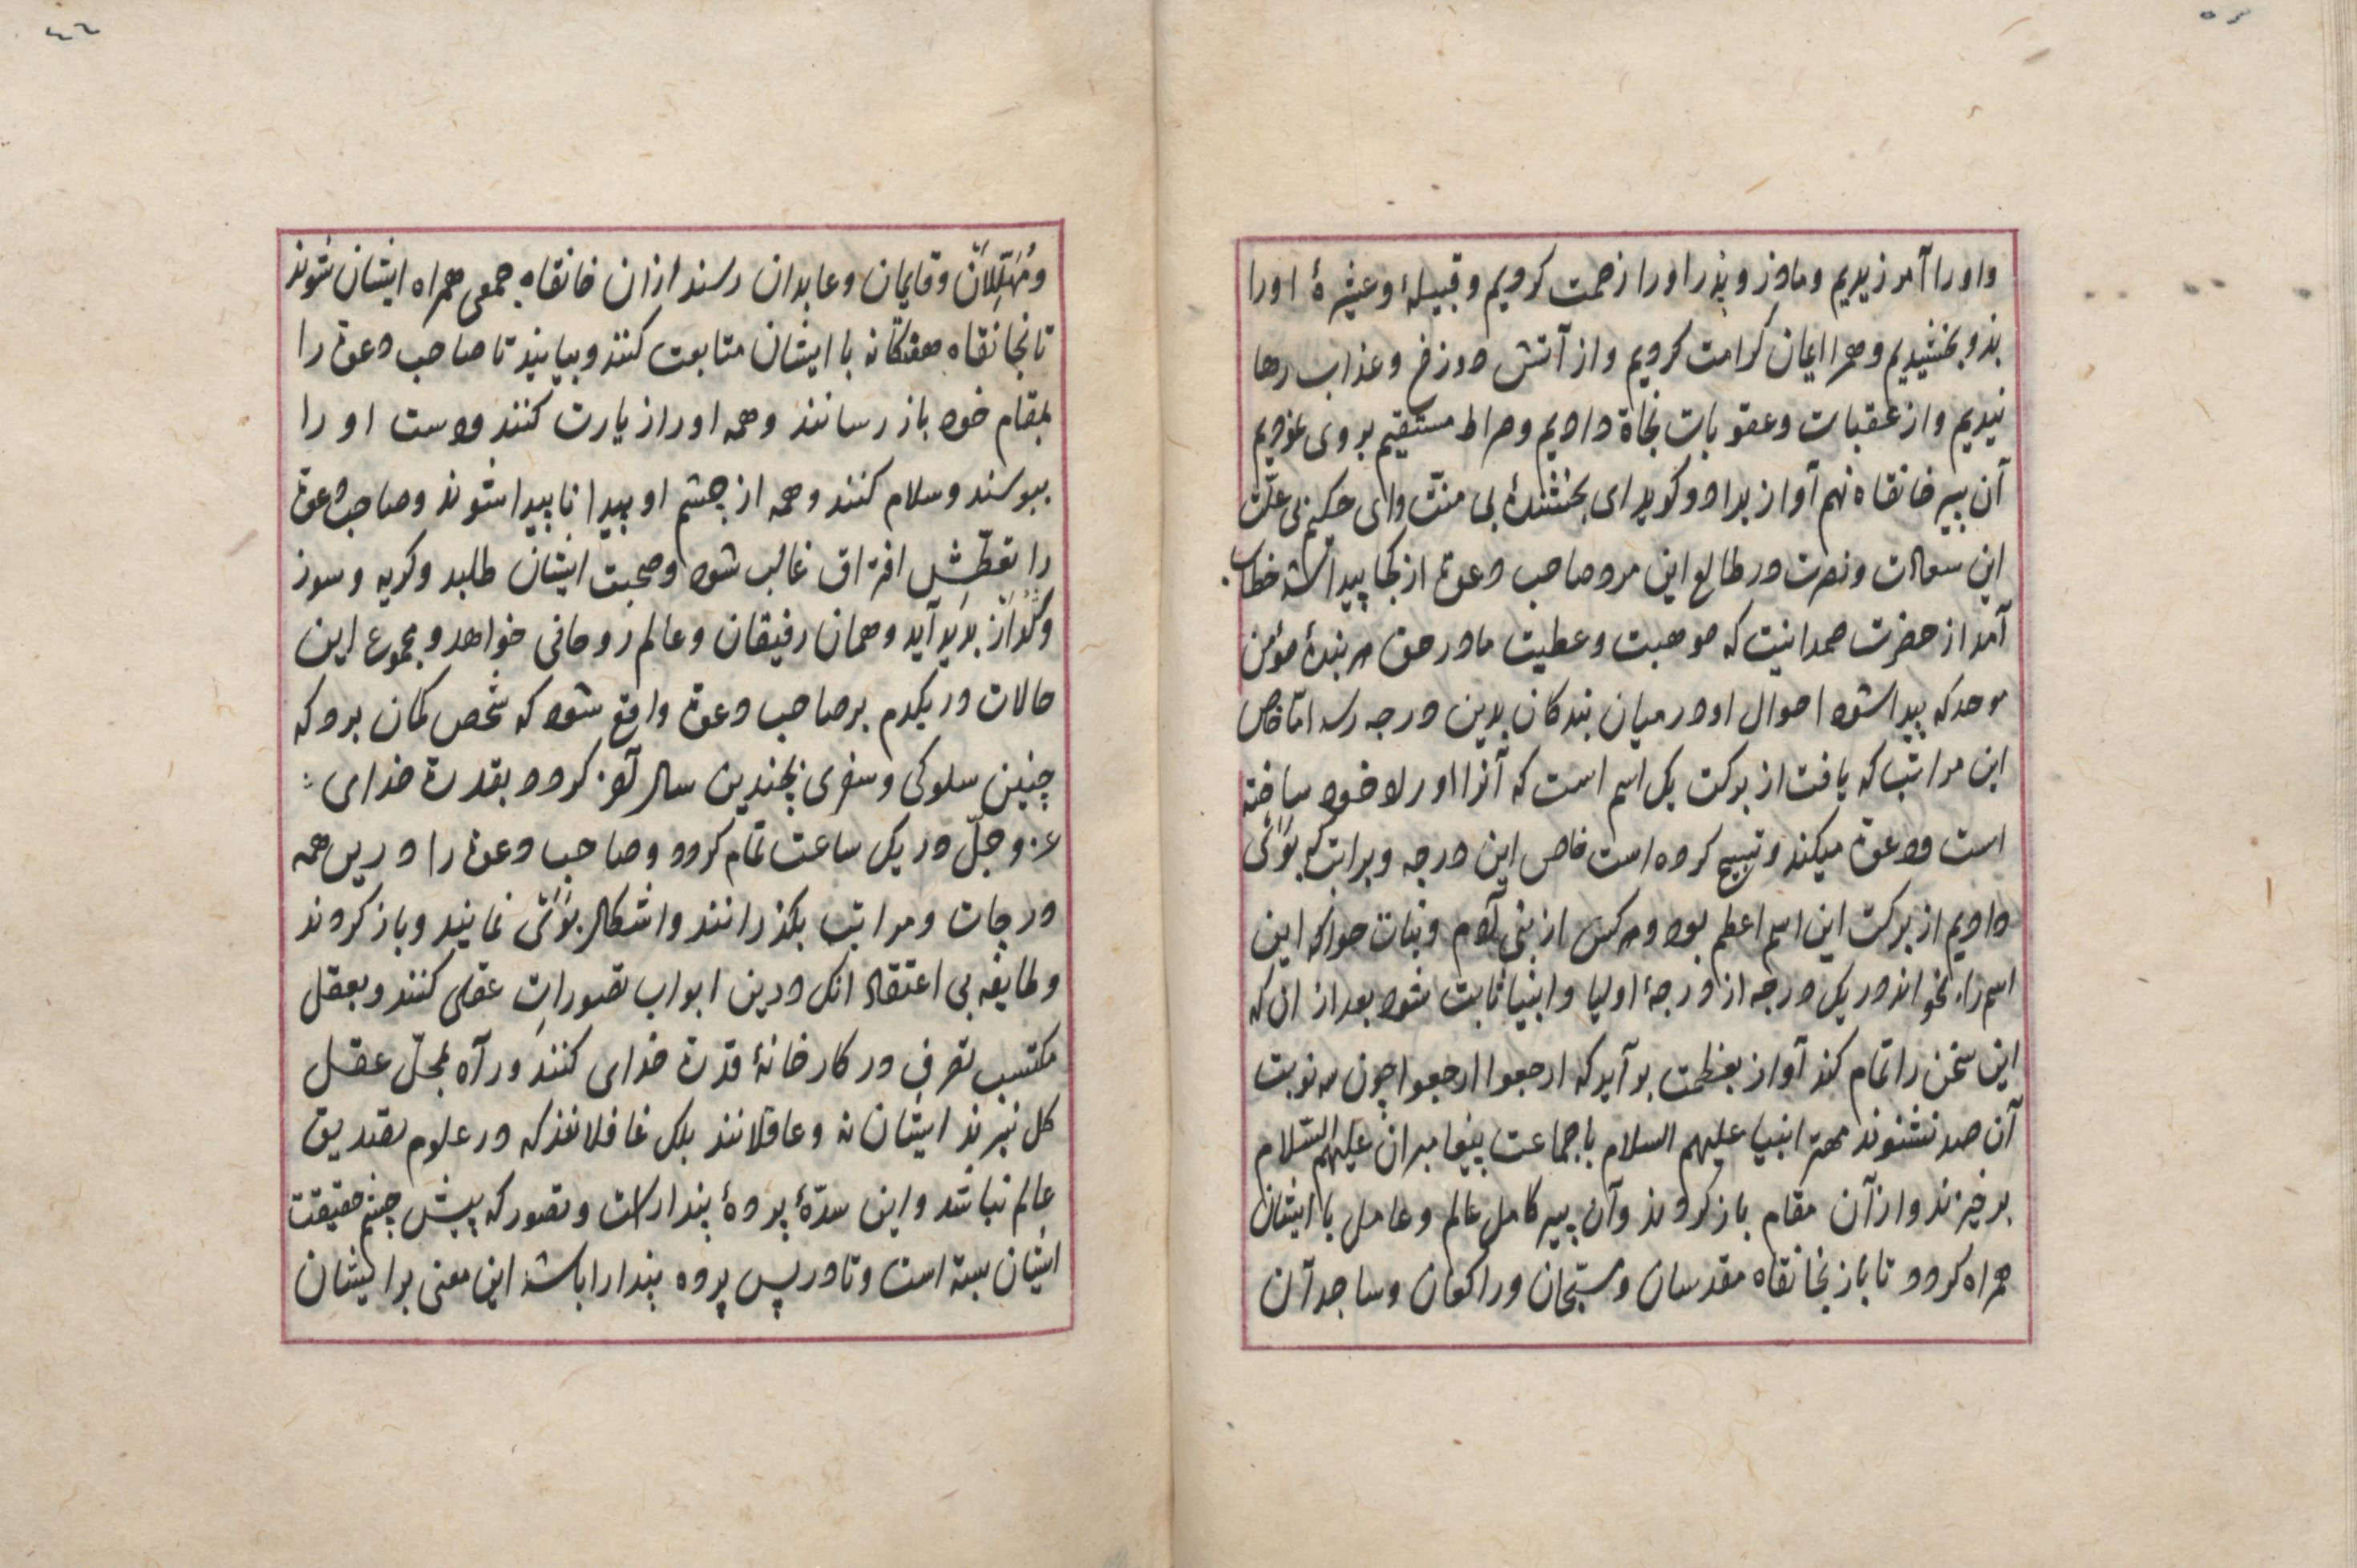 واورا آمرزیدیم ومادر وپدر اورا رحمت کردیم وقبیلهٔ وعشیرهٔ اورا
بدو بخشیدیم وهمرا ایمان کرامت کردیم واز آتش دوزخ وعذاب رها
نیدیم واز عقبات وعقوبات نجاة دادیم وصراط مستقیم بروی نمودیم
آن پیر خانقاه نهم آواز برادد وکوید ای بخشندهٔ بی منّت وای حکیم بی علّت
این سعادت ونصرت در طالع این مرد صاحب دعوة از کجا پیدا شد خطاب
آمد از حضرت صمدانیت که موهبت وعطیت ما در حق هر بندهٔ مؤمن
موحد که پیدا شود احوال او در میان بندکان بدین درجه رسد امّا خاص
این مراتب که یافت از برکت یک اسم است که آنرا اوراد خود ساخته
است ودعوة میکند وتسبیح کرده است خاص این درجه وبرات که بوی
دادیم از برکت این اسم اعظم بود وهر کس از بنی آدم وبنات حوا که این
اسم را بخواند در یک درجه از درجهٔ اولیا وانبیا ثابت شود بعد از ان که
این سخن را تمام کند آواز بعظمت برآید که ارجعوا ارجعوا چون سه نوبت
آن صدا بشنوند مهتر انبیا علیهم السلام با جماعت پیغامبران علیهم السّلام
برخیزند واز آن مقام باز کردند وآن پیر کامل عالم وعامل با ایشان
همراه کردد تا باز بخانقاه مقدسان ومسبّحان وراکعان وساجدان
ومُهَلِّلان وقایمان وعابدان رسند از ان خانقاه جمعی همراه ایشان شوند
تا بخانقاه هفتکانه با ایشان متابعت کنند وبیایند تا صاحب دعوة را
بمقام خود باز رسانند وهمه اورا زیارت کنند ودست او را
ببوسند وسلام کنند وهمه از چشم او پیدا ناپیدا شوند وصاحب دعوة
را تعطّش افتراق غالب شود وصحبت ایشان طلبد وکریه وسوز
وکداز پدید آید وهمان رفیقان وعالم روحانی خواهد ومجموع این
حالات در یکدم بر صاحب دعوة واقع شود که شخص کمان برد که
چنین سلوکی وسفری بچندین سال کردد بقدرة خدای
عز وجلّ در یک ساعت تمام کردد وصاحب دعوة را درین همه
درجات ومراتب بکذرانند واشکال بوی نمایند وباز کردند
وطایفه بی اعتقاد انک درین ابواب تصورات عقلی کنند وبعقل
مکتسب تصرف در کارخانهٔ قدرة خدای کنند وراه بمحلّ عقل
کل نبرند ایشان نه عاقلانند بلک غافلانند که در علوم تصدیق
عالم نباشد واین سدّهٔ پردهٔ پندارست وتصور که پیش چشم حقیقت
ایشان بسته است وتا در پس پرده پندارا باشند این معنی برایشان